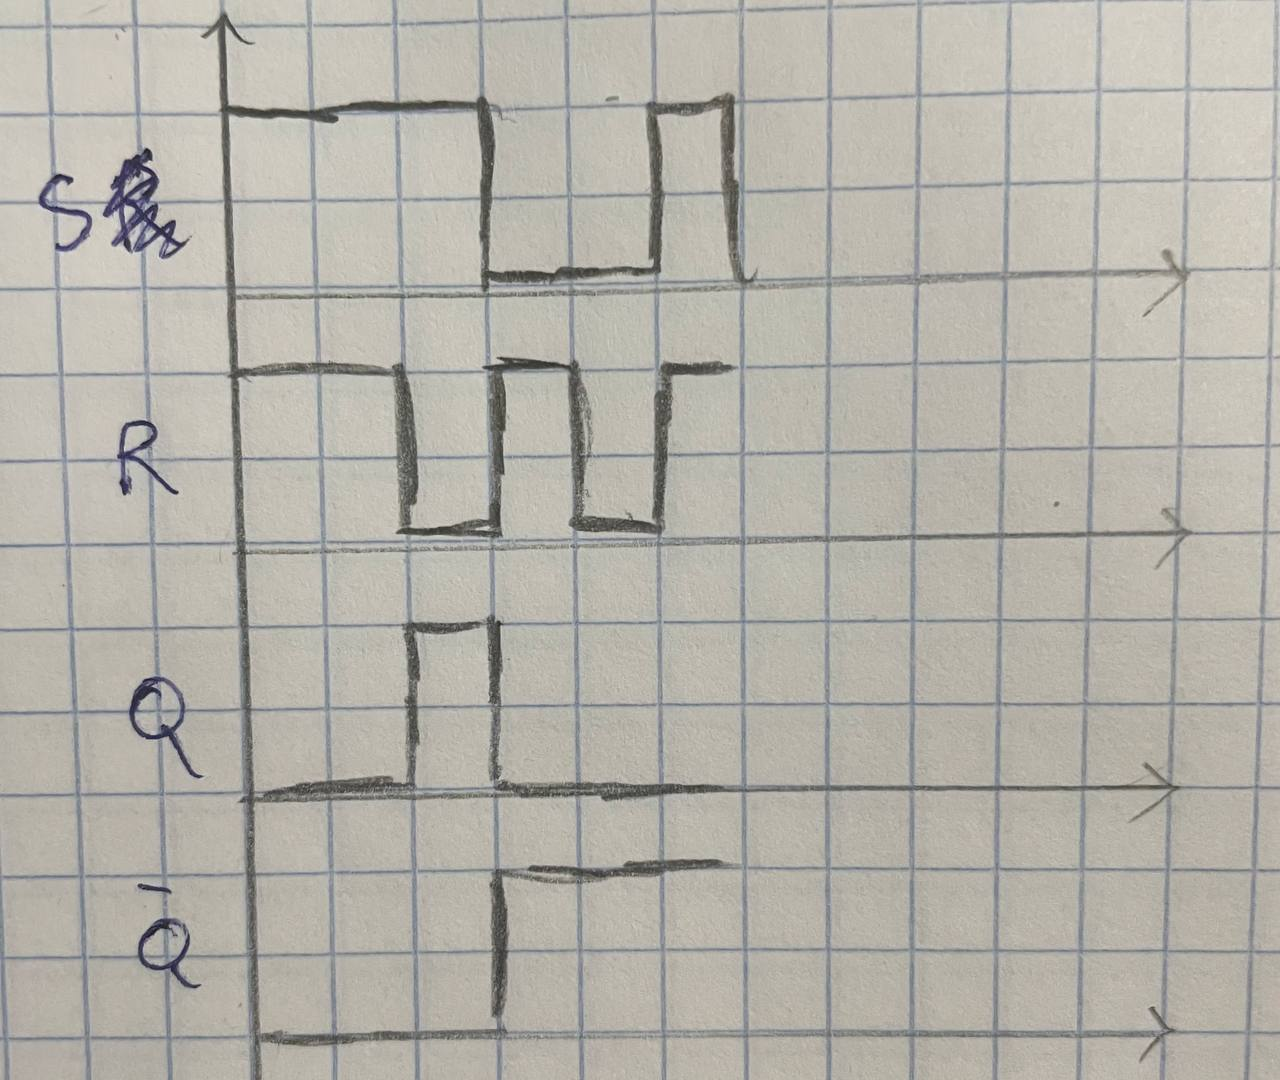 S
R
Q
Q̄